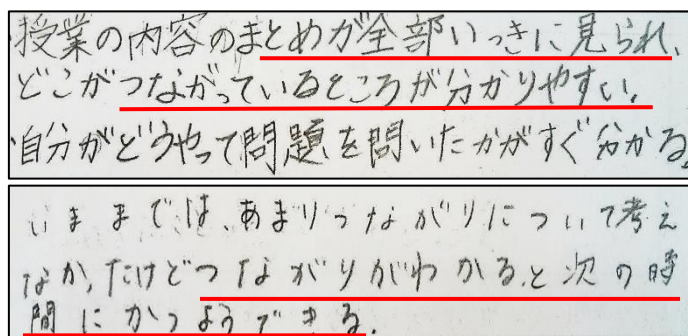 ・授業の内容のまとめが全部いっきに見られ、
どこがつながっているところが分かりやすい。
・自分がどうやって問題を問いたかがすぐ分かる。
いままでは、あまりつながりについて考え
なかっただけどつながりがわかると次の時
間にかつようできる。